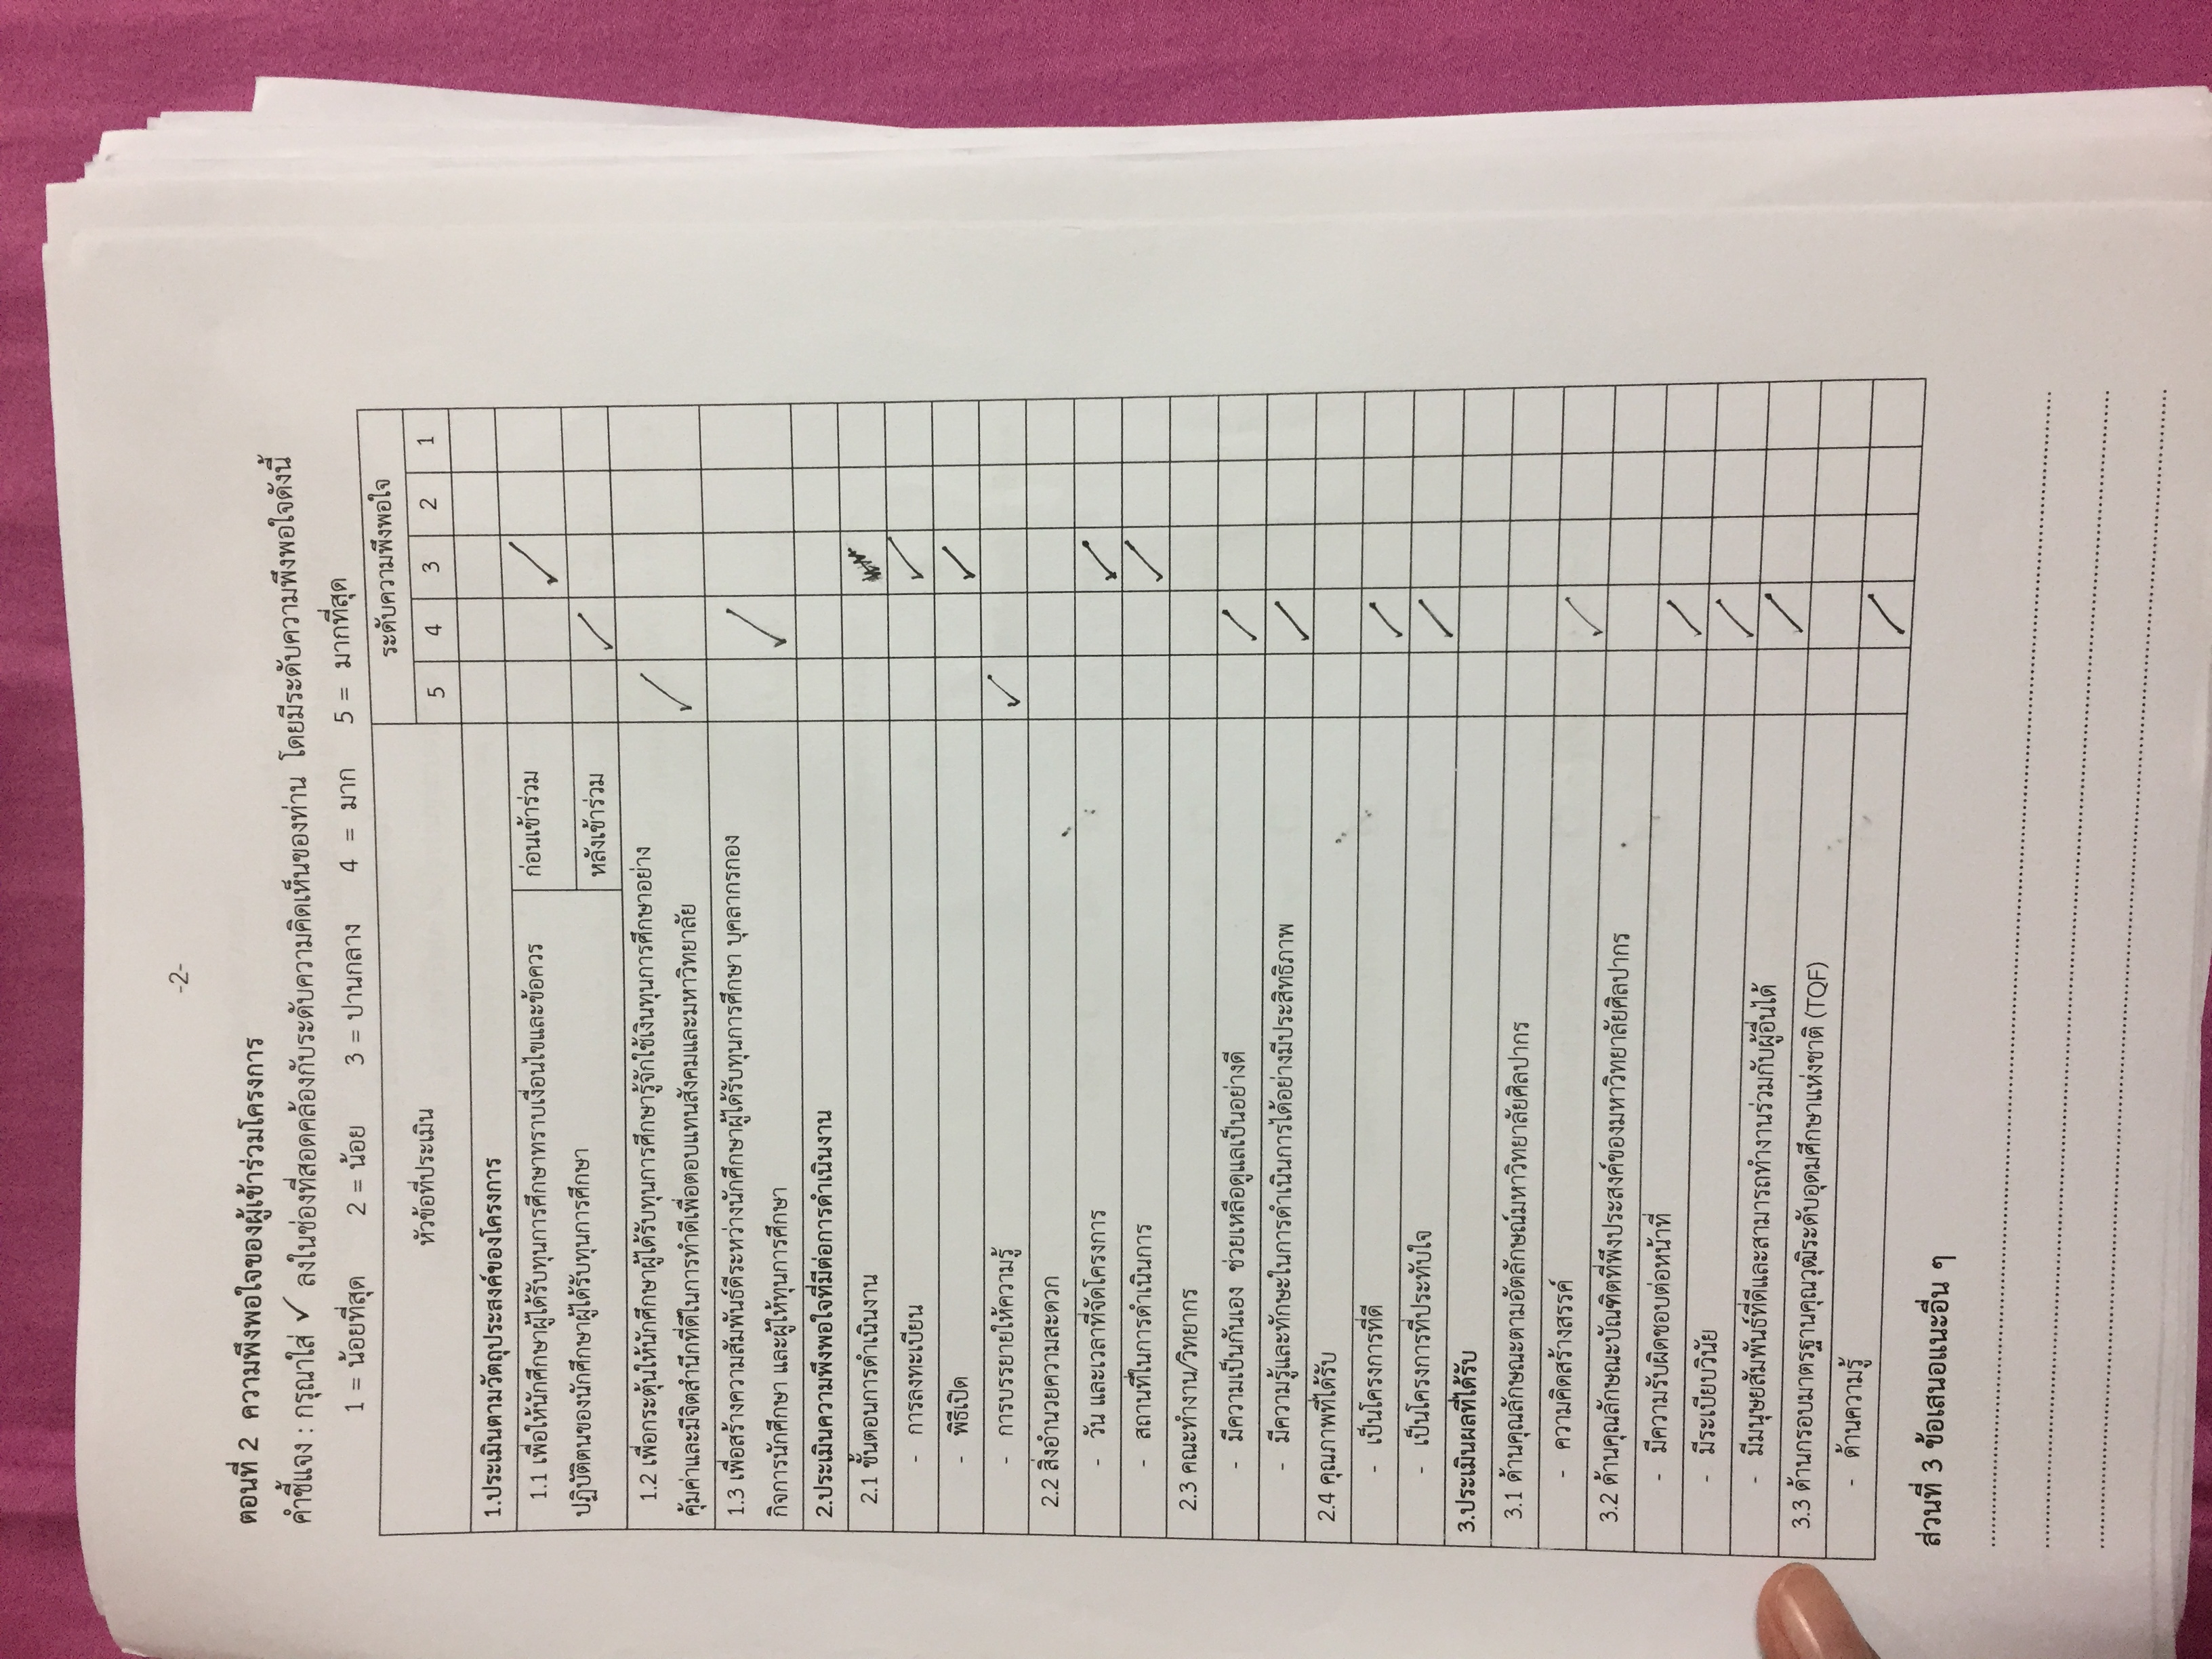 -2-
ตอนที่ 2 ความพึงพอใจของผู้เข้าร่วมโครงการ
คำชี้แจง : กรุณาใส่ ✓ ลงในช่องที่สอดคล้องกับระดับความคิดเห็นของท่าน โดยมีระดับความพึงพอใจดังนี้
1 = น้อยที่สุด 2 = น้อย 3 = ปานกลาง 4 = มาก 5 = มากที่สุด
หัวข้อที่ประเมิน ระดับความพึงพอใจ
5 4 3 2 1
1.ประเมินตามวัตถุประสงค์ของโครงการ
1.1 เพื่อให้นักศึกษาผู้ได้รับทุนการศึกษาทราบเงื่อนไขและข้อควร ก่อนเข้าร่วม ✓
ปฏิบัติตนของนักศึกษาผู้ได้รับทุนการศึกษา หลังเข้าร่วม ✓
1.2 เพื่อกระตุ้นให้นักศึกษาผู้ได้รับทุนการศึกษารู้จักใช้เงินทุนการศึกษาอย่าง ✓
คุ้มค่าและมีจิตสำนึกที่ดีในการทำดีเพื่อตอบแทนสังคมและมหาวิทยาลัย
1.3 เพื่อสร้างความสัมพันธ์ดีระหว่างนักศึกษาผู้ได้รับทุนการศึกษา บุคลากรกอง ✓
กิจการนักศึกษา และผู้ให้ทุนการศึกษา
2.ประเมินความพึงพอใจที่มีต่อการดำเนินงาน
2.1 ขั้นตอนการดำเนินงาน
- การลงทะเบียน ✓
- พิธีเปิด ✓
- การบรรยายให้ความรู้ ✓
2.2 สิ่งอำนวยความสะดวก
- วัน และเวลาที่จัดโครงการ ✓
- สถานที่ในการดำเนินการ ✓
2.3 คณะทำงาน/วิทยากร
- มีความเป็นกันเอง ช่วยเหลือดูแลเป็นอย่างดี ✓
- มีความรู้และทักษะในการดำเนินการได้อย่างมีประสิทธิภาพ ✓
2.4 คุณภาพที่ได้รับ
- เป็นโครงการที่ดี ✓
- เป็นโครงการที่ประทับใจ ✓
3.ประเมินผลที่ได้รับ
3.1 ด้านคุณลักษณะตามอัตลักษณ์มหาวิทยาลัยศิลปากร
- ความคิดสร้างสรรค์ ✓
3.2 ด้านคุณลักษณะบัณฑิตที่พึงประสงค์ของมหาวิทยาลัยศิลปากร
- มีความรับผิดชอบต่อหน้าที่ ✓
- มีระเบียบวินัย ✓
- มีมนุษยสัมพันธ์ที่ดีและสามารถทำงานร่วมกับผู้อื่นได้ ✓
3.3 ด้านกรอบมาตรฐานคุณวุฒิระดับอุดมศึกษาแห่งชาติ (TQF)
- ด้านความรู้ ✓
ส่วนที่ 3 ข้อเสนอแนะอื่น ๆ